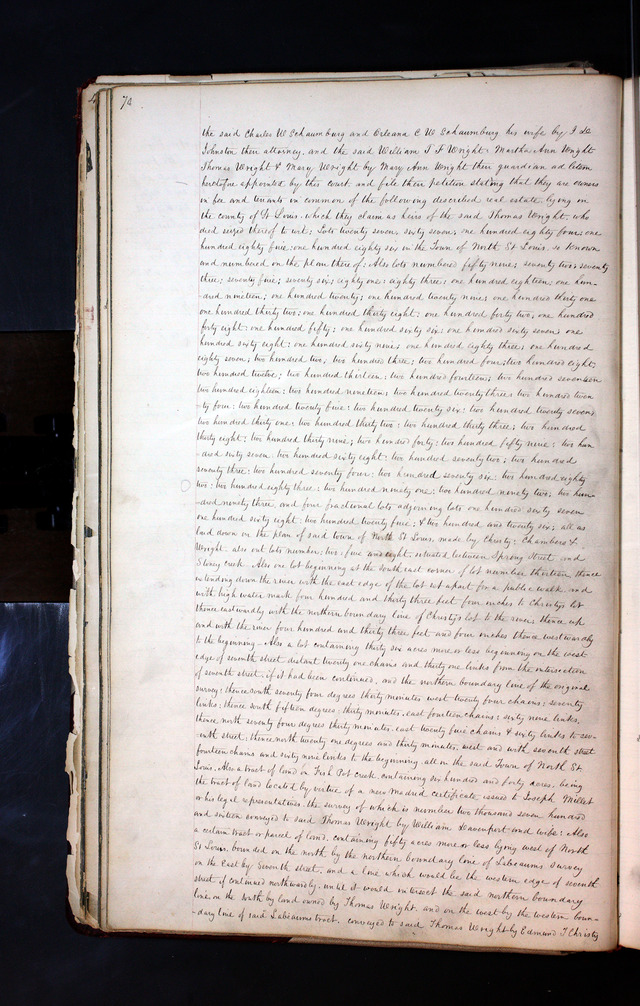 74
the said Charles W Schaumburg and Orleana C W Schaumburg his wife by
Johnston their attorney, and the said William T F Wright. Martha Ann Wright
Thomas Wright & Mary Wright by Mary Ann Wright their guardian ad litem
heretofore appointed by this court and file their petition stating that they are owners
in fee and tenants in common of the following described real estate lying in
the county of St Louis, which they claim as heirs of the said Thomas Wright, who
died seized thereof to wit: Lots twenty seven, sixty seven; one hundred eighty four; one
hundred eighty five; one hundred eighty six in the Town of North St Louis, so known
and numbered on the plan thereof: Also lots numbered fifty nine; seventy two; seventy
three; seventy five; seventy six; eighty one; eighty three; one hundred eighteen; one hun-
-dred nineteen; one hundred twenty; one hundred twenty nine; one hundred thirty one
one hundred thirty two; one hundred thirty eight; one hundred forty two; one hundred
forty eight; one hundred fifty; one hundred sixty six; one hundred sixty seven one
hundred sixty eight; one hundred sixty nine; one hundred eighty three; one hundred
eighty seven, two hundred two; two hundred three; two hundred four; two hundred eight;
two hundred twelve; two hundred thirteen; two hundred fourteen; two hundred seventeen
two hundred eighteen; two hundred nineteen; two hundred twenty three; two hundred twen
-ty four; two hundred twenty five; two hundred twenty six; two hundred twenty seven;
two hundred thirty one; two hundred thirty two; two hundred thirty three; two hundred
thirty eight; two hundred thirty nine; two hundred forty; two hundred fifty nine; two hun
-dred sixty seven; two hundred sixty eight; two hundred seventy two; two hundred
seventy three; two hundred seventy four; two hundred seventy six; two hundred eighty
two; two hundred eighty three; two hundred ninety one; two hundred ninety two; two hun-
-dred ninety three, and four fractional lots adjoining lots one hundred sixty seven
one hundred sixty eight two hundred twenty five; & two hundred and twenty six; all as
laid down on the plan of said town of North St Louis, made by Christy; Chambers &
Wright. also out lots number; two; five and eight, situated between Spring Street and
Stoney creek. Also one lot beginning at the south east corner of lot number thirteen thence
extending down the river with the east edge of the lot set apart for a public walk and
with high water mark four hundred and thirty three feet four inches to Christy's lot
thence eastwardly with the northern boundary line of Christy's lot to the river; thence up
and with the river four hundred and thirty three feet and four inches thence westwardly
to the beginning. Also a lot containing thirty six acres more or less beginning on the west
edge of seventh street distant twenty one chains and thirty one links from the intersection
of seventh street, if it had been continued, and the northern boundary line of the original
survey; thence south seventy four degrees thirty minutes west twenty four chains; seventy
links; thence south fifteen degrees; thirty minutes, east fourteen chains; sixty nine links,
thence north seventy four degrees thirty minutes east twenty five chains & sixty links to sev-
-enth street; thence north twenty one degrees and thirty minutes west and with seventh street
fourteen chains and sixty nine links to the beginning all in the said Town of North St
Louis. Also a tract of land on Fish Pot creek containing six hundred and forty acres, being
the tract of land located by virtue of a new Madrid certificate issued to Joseph Millet
or his legal representatives the survey of which is number two thousand seven hundred
and sixteen conveyed to said Thomas Wright by William Davenport and wife: Also
a certain tract or parcel of land, containing fifty acres more or less lying west of North
St Louis, bounded on the north by the northern boundary line of Labeaums survey
on the East by Seventh street, and a line which would be the western edge of seventh
street, if continued northwardly, until it would intersect the said northern boundary
line, on the south by land owned by Thomas Wright, and on the west by the western boun-
-dary line of said Labeaums tract, conveyed to said Thomas Wright by Edmund T Christy